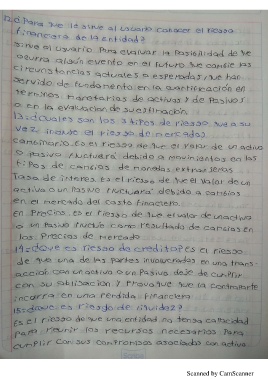 12.¿Para que le sirve al usuario conocer el riesgo
financiero de la entidad?
Sirve al usuario. Para evaluar la posibilidad de que
ocurra algún evento en el futuro que cambie las
circunstancias actuales o esperadas, que han
servido de fundamento en la cuantificación en
terminos monetarios de activos y de pasivos
o en la evaluación de su estimación
13.¿cuales son los 3 tipos de riesgo que a su
vez incluye el riesgo de mercado?
cambiario. Es el riesgo de que el valor de un activo
o pasivo fluctuara debido a movimientos en los
tipos de cambios de monedas extranjeras
Tasa de interes. Es el riesgo de que el valor de un
activo o un pasivo fluctuara debido a cambios
en el mercado del costo financiero.
En Precios. Es el riesgo de que el valor de un activo
o un pasivo fluctue como resultado de cambios en
los Precios de mercado
14.¿que es riesgo de credito? Es el riesgo
de que una de las partes involucradas en una trans-
acción con un activo o un pasivo, deje de cumplir
con su obligación y provoque que la contraparte
incurra en una perdida financiera
15.¿que es riesgo de liquidez?
Es el riesgo de que una entidad no tenga capacidad
para reunir los recursos necesarios para
cumplir con sus compromisos asociados con activo
Scanned by CamScanner